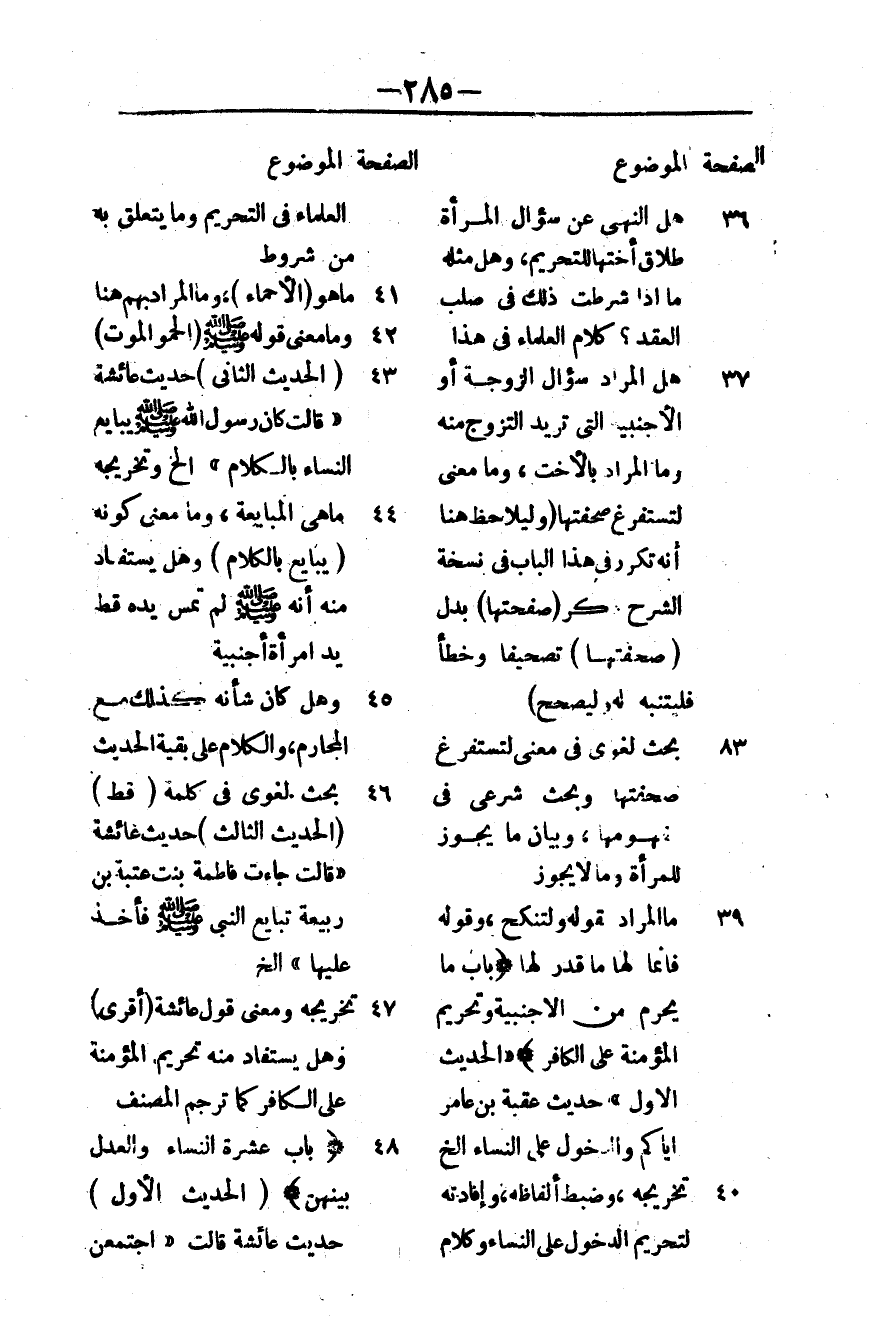 —٢٨٥—
الصفحة الموضوع
٣٦ هل النهى عن سؤال المرأة
طلاق أختها للتحريم، وهل مثله
ما اذا شرطت ذلك فى صلب
العقد ؟ كلام العلماء فى هذا
٣٧ هل المراد سؤال الزوجة أو
الأجنبية التى تريد التزوج منه
وما المراد بالأخت ، وما معنى
لتستفرغ صحفتها (وليلاحظ هنا
أنه تكرر فى هذا الباب فى نسخة
الشرح ذكر (صفحتها) بدل
(صحفتها) تصحيفا وخطأ
فليتنبه له وليصحح)
٨٣ بحث لغوى فى معنى لتستفرغ
صحفتها وبحث شرعى فى
مفهومها ، وبيان ما يجوز
للمرأة وما لا يجوز
٣٩ ما المراد بقوله ولتنكح ، وقوله
فانما لها ما قدر لها ﴿باب ما
يحرم من الاجنبية وتحريم
المؤمنة على الكافر ﴾ «الحديث
الاول » حديث عقبة بن عامر
اياكم والدخول على النساء الخ
٤٠ تخريجه ، وضبط ألفاظه، وإفادته
لتحريم الدخول على النساء وكلام
الصفحة الموضوع
العلماء فى التحريم وما يتعلق به
من شروط
٤١ ما هو (الأحماء) ، وما المراد بهم هنا
٤٢ وما معنى قوله ﷺ (الحمو الموت)
٤٣ ( الحديث الثانى ) حديث عائشة
« قالت كان رسول الله ﷺ يبايع
النساء بالكلام » الخ وتخريجه
٤٤ ماهى المبايعة ، وما معنى كونه
( يبايع بالكلام ) وهل يستفاد
منه أنه ﷺ لم تمس يده قط
يد امرأة أجنبية
٤٥ وهل كان شأنه كذلك مع
المحارم، والكلام على بقية الحديث
٤٦ بحث لغوى فى كلمة ( قط )
(الحديث الثالث ) حديث عائشة
«قالت جاءت فاطمة بنت عتبة بن
ربيعة تبايع النبي ﷺ فأخذ
عليها » الخ
٤٧ تخريجه ومعنى قول عائشة (أقرى)
وهل يستفاد منه تحريم المؤمنة
على الكافر كما ترجم المصنف
٤٨ ﴿ باب عشرة النساء والعدل
بينهن ﴾ ( الحديث الأول )
حديث عائشة قالت « اجتمعن